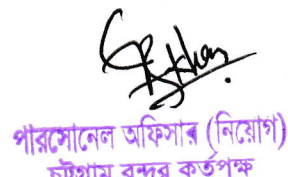 পারসোনেল অফিসার (নিয়োগ)
চট্টগ্রাম বন্দর কর্তৃপক্ষ